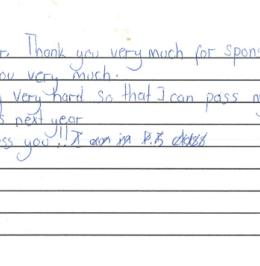 r. Thank you very much for spons
ou very much.
very hard so that I can pass m
s next year
ess you!! I am in P.5